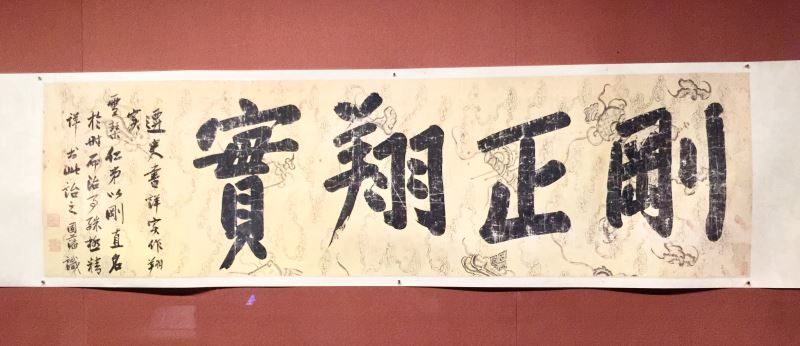 剛正翔實
遷史書詳實作翔
實
雪琴仁弟以剛直名
於時而治事殊極精
詳書此詒之國藩識